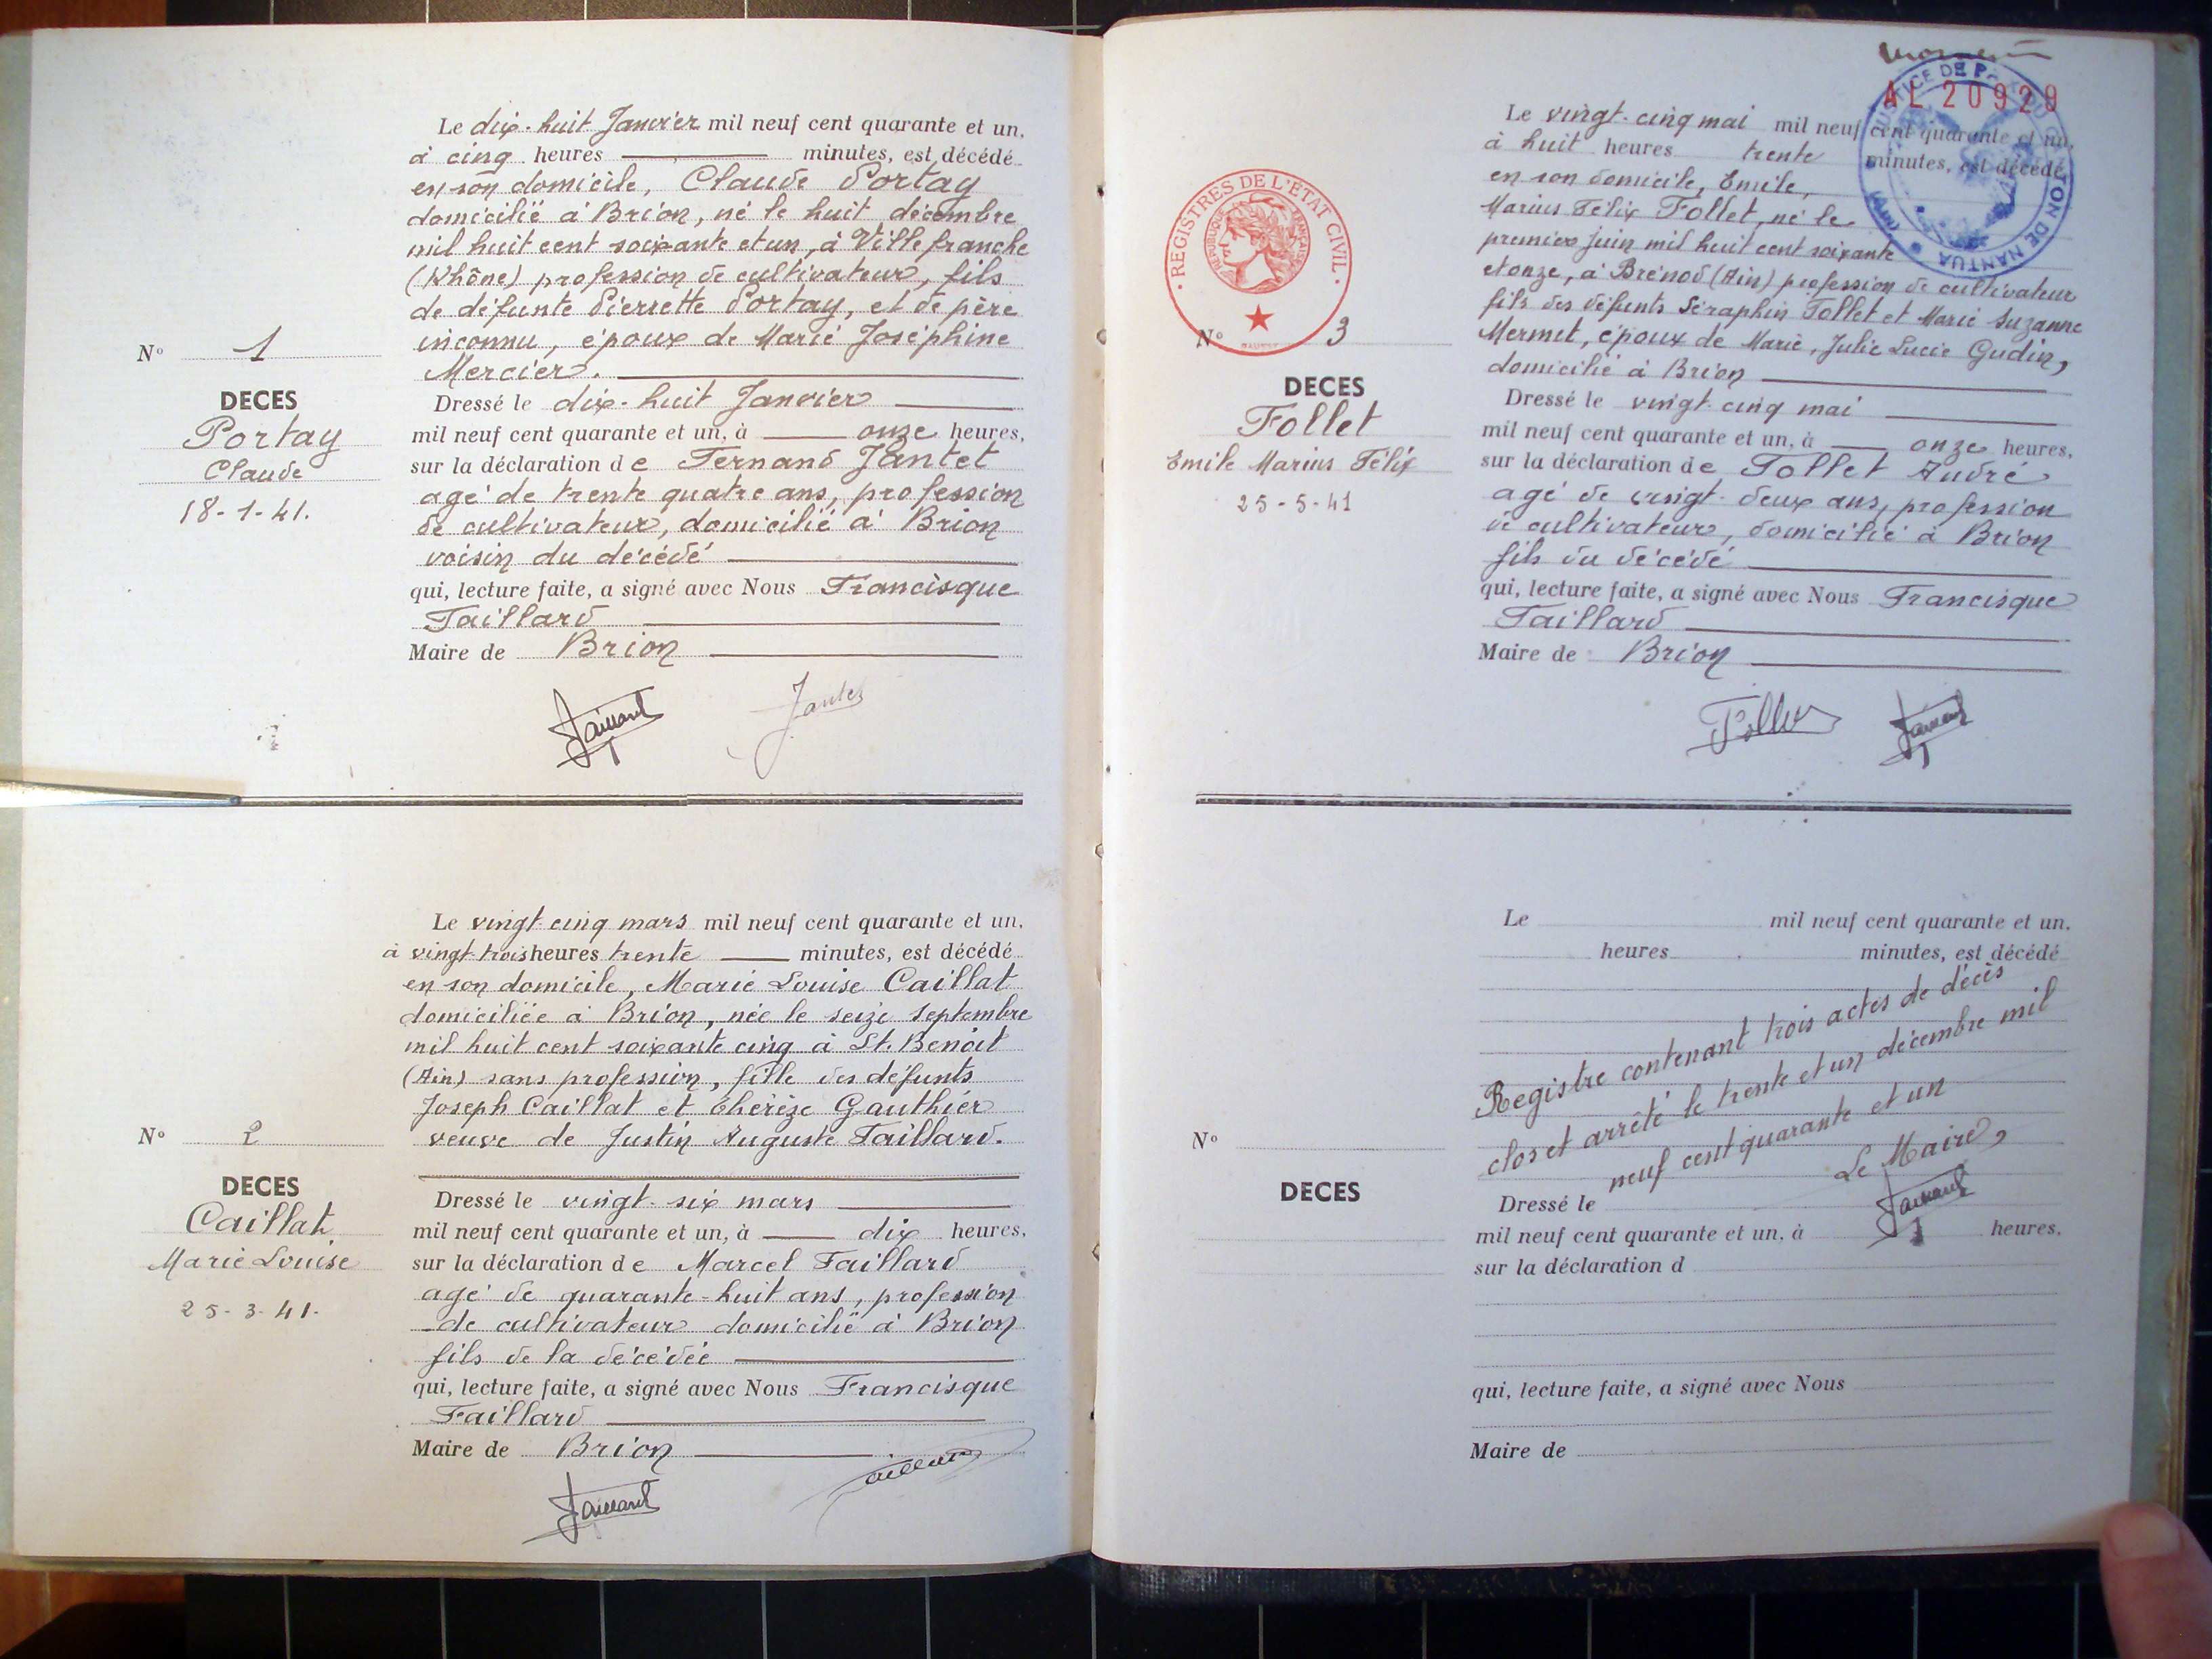 Le dix-huit Janvier mil neuf cent quarante et un,
à cinq heures minutes, est décédé
en son domicile, Claude Portay
domicilié à Brion, né le huit décembre
mil huit cent soixante et un, à Villefranche
(Rhône) profession de cultivateur, fils
de défunte Pierrette Portay, et de père
inconnu, époux de Marie Joséphine
Mercier.
N° 1
DECES
Portay
Claude
18-1-41.
Dressé le dix-huit Janvier
mil neuf cent quarante et un, à onze heures,
sur la déclaration de Fernand Jantet
agé de trente quatre ans, profession
de cultivateur, domicilié à Brion
voisin du décédé
qui, lecture faite, a signé avec Nous Francisque
Taillard
Maire de Brion
Taillard Jantet
Le vingt-cinq mars mil neuf cent quarante et un,
à vingt trois heures trente minutes, est décédé
en son domicile, Marie Louise Caillat
domiciliée à Brion, née le seize septembre
mil huit cent soixante cinq à St. Benoit
(Ain) sans profession, fille des défunts
Joseph Caillat et Thérèze Gauthier
veuve de Justin Auguste Taillard.
N° 2
DECES
Caillat
Marie Louise
25-3-41.
Dressé le vingt-six mars
mil neuf cent quarante et un, à dix heures,
sur la déclaration de Marcel Taillard
agé de quarante-huit ans, profession
de cultivateur domicilié à Brion
fils de la décédée
qui, lecture faite, a signé avec Nous Francisque
Taillard
Maire de Brion
Taillard Taillard
AL 20929
JUSTICE DE PAIX DU CANTON DE NANTUA (Ain)
REGISTRES DE L'ÉTAT CIVIL
RÉPUBLIQUE FRANÇAISE
Le vingt-cinq mai mil neuf cent quarante et un,
à huit heures trente minutes, est décédé
en son domicile, Emile,
Marius Félix Follet, né le
premier juin mil huit cent soixante
et onze, à Brénod (Ain) profession de cultivateur
fils des défunts Séraphin Follet et Marie Suzanne
Mermet, époux de Marie, Julie Lucie Gudin,
domicilié à Brion
N° 3
DECES
Follet
Emile Marius Félix
25-5-41
Dressé le vingt-cinq mai
mil neuf cent quarante et un, à onze heures,
sur la déclaration de Follet André
agé de vingt-deux ans, profession
de cultivateur, domicilié à Brion
fils du décédé
qui, lecture faite, a signé avec Nous Francisque
Taillard
Maire de Brion
Follet Taillard
Le mil neuf cent quarante et un,
heures minutes, est décédé
Registre contenant trois actes de décès
clos et arrêté le trente et un décembre mil
neuf cent quarante et un
Le Maire,
Taillard
N°
DECES
Dressé le
mil neuf cent quarante et un, à heures,
sur la déclaration d
qui, lecture faite, a signé avec Nous
Maire de